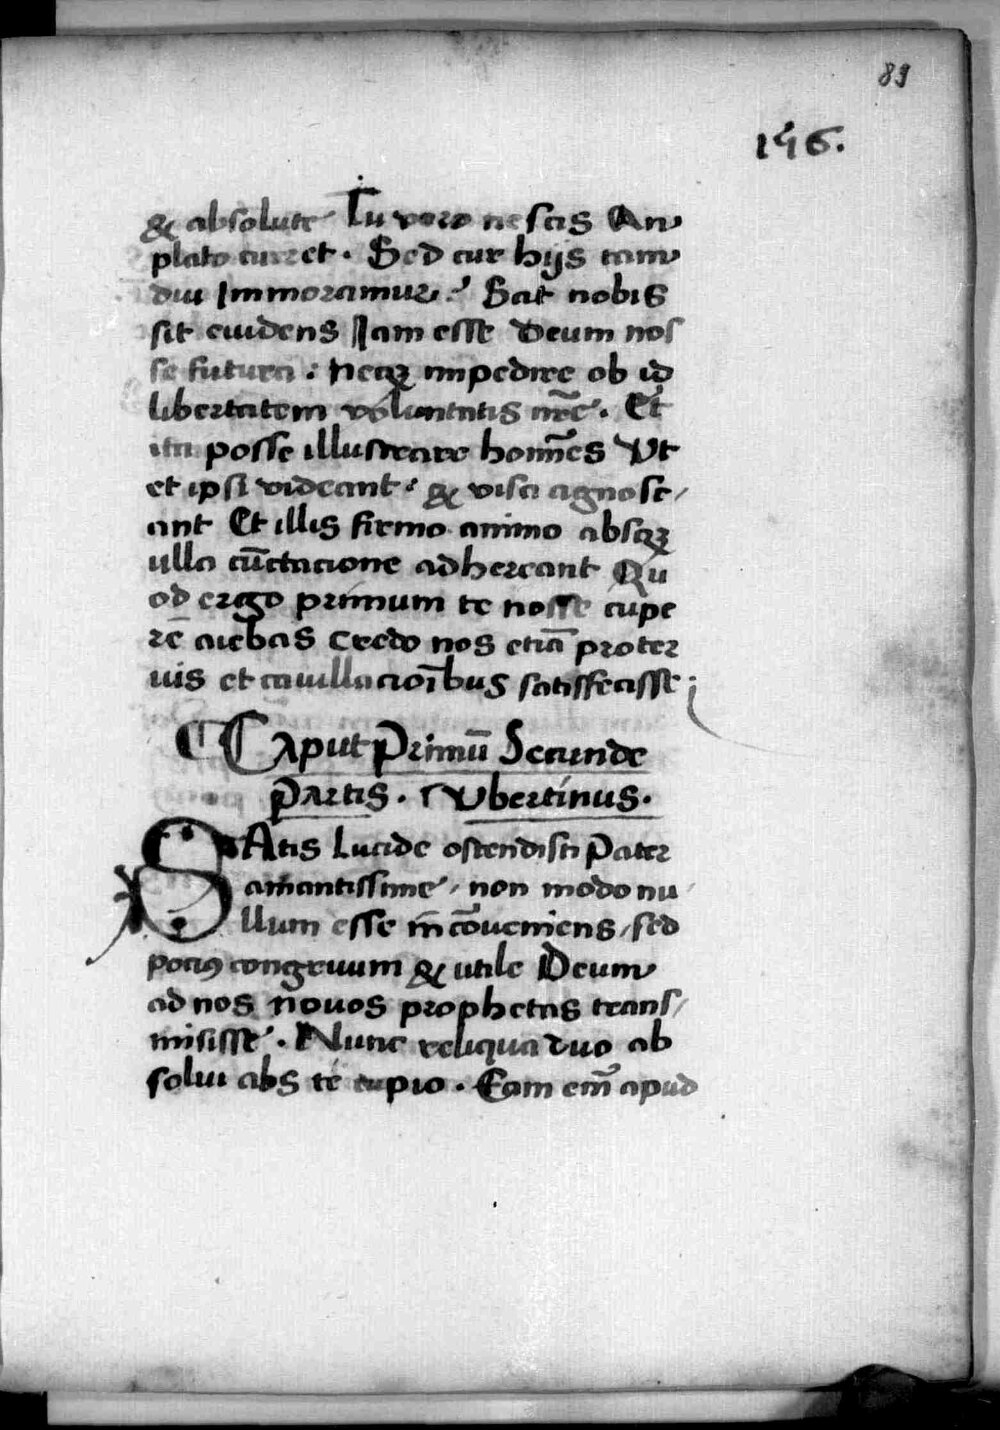 89
146.
& absolute Tu vero nescis An
plato curret. Sed cur hijs tam
diu Immoramur? Sat nobis
sit euidens Iam esse Deum nos
se futura: Neqꝫ impedire ob id
libertatem voluntatis nr̃e. Et
ita posse illustrare homīes Vt
et ipsi videant: & visa agnosc/
ant Et illis firmo animo absqꝫ
ulla cūctacione adhereant Qu
od ergo primum te nosse cupe
rē aiebas Credo nos etiā proter
uis et cauillacioībus satisfecisse;
Caput Primū Secunde
Partis. Vbertinus.
SAtis Lucide ostendisti Pater
amantissime, non modo nu/
llum esse īncōueniens, sed
pociꝰ congruum & utile Deum
ad nos nouos prophetas trans/
misisse. Nunc reliqua duo ab
solui abs te cupio. Eam em̄ apud